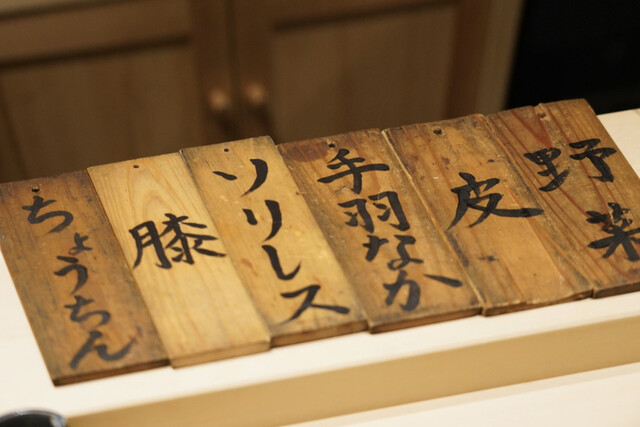 野菜
皮
手羽なか
ソリレス
膝
ちょうちん